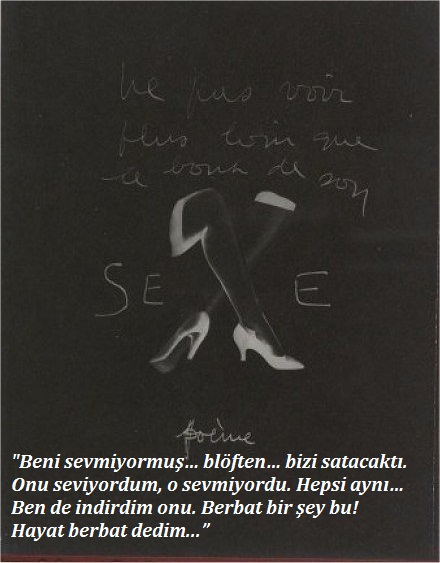 ne pas voir
plus loin que
le bout de son
SE E
poème
"Beni sevmiyormuş... blöften... bizi satacaktı.
Onu seviyordum, o sevmiyordu. Hepsi aynı...
Ben de indirdim onu. Berbat bir şey bu!
Hayat berbat dedim..."